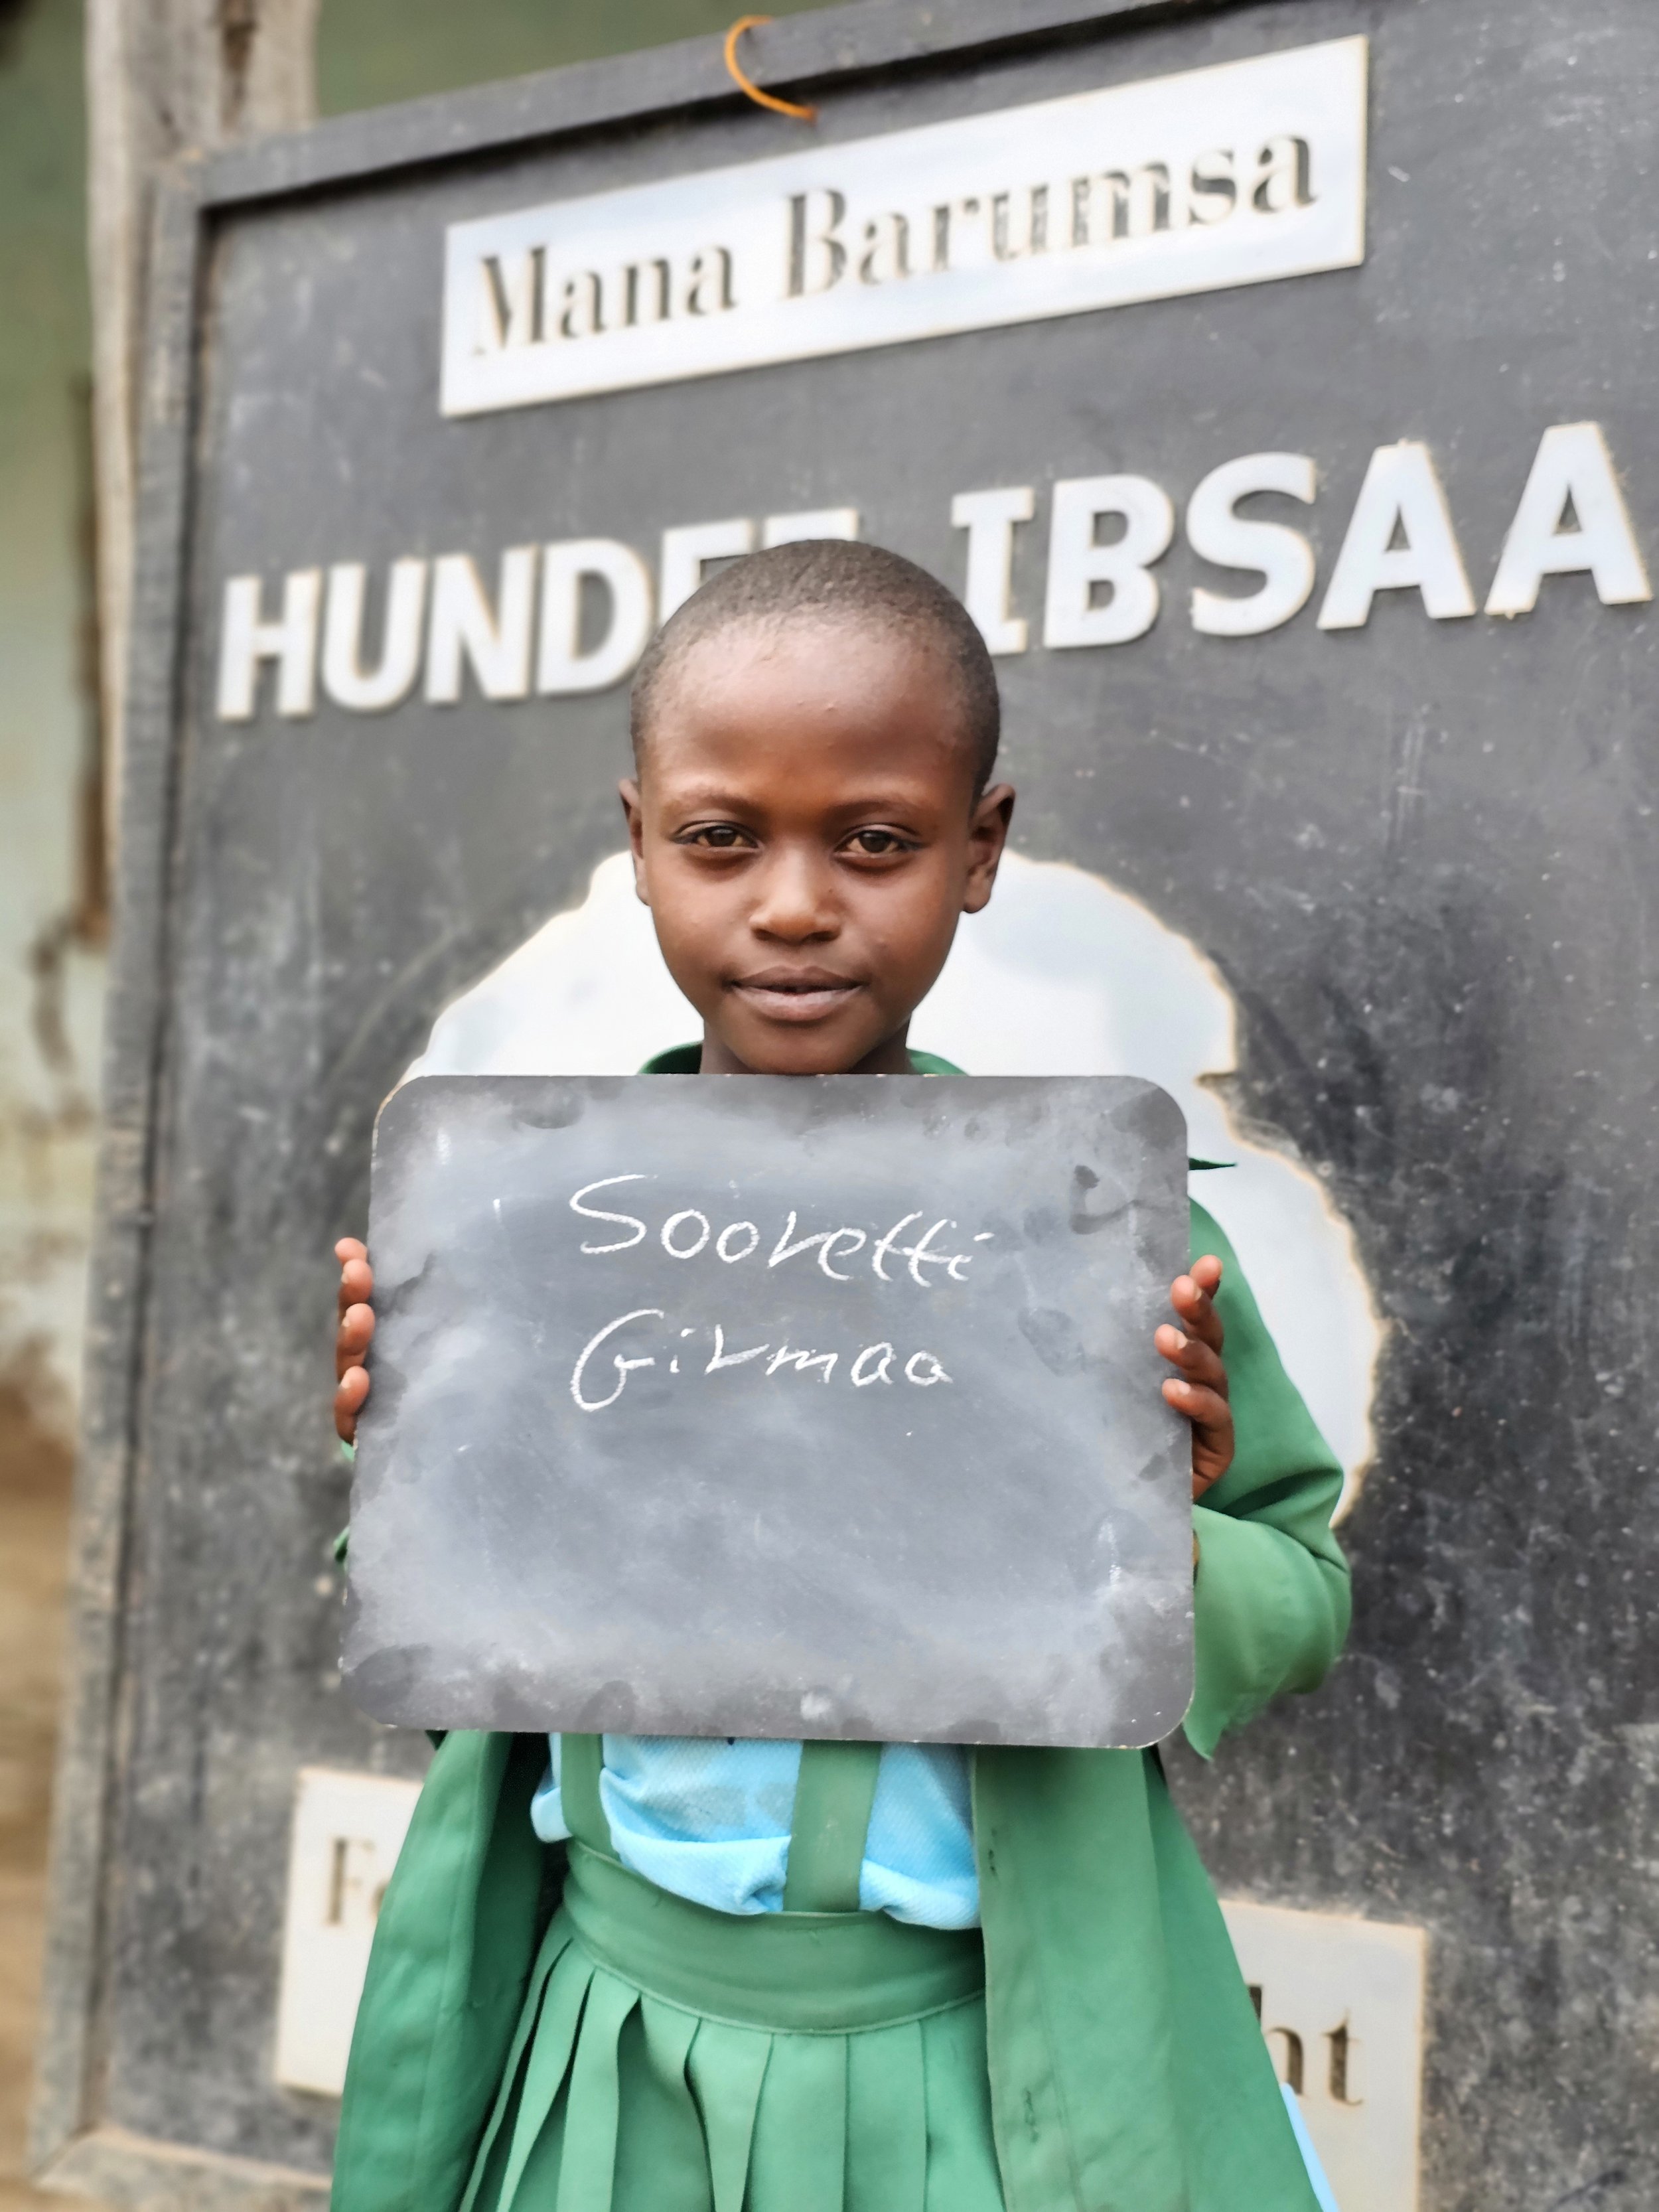 Mana Barumsa
HUNDEE IBSAA
Sooretti
Girmaa